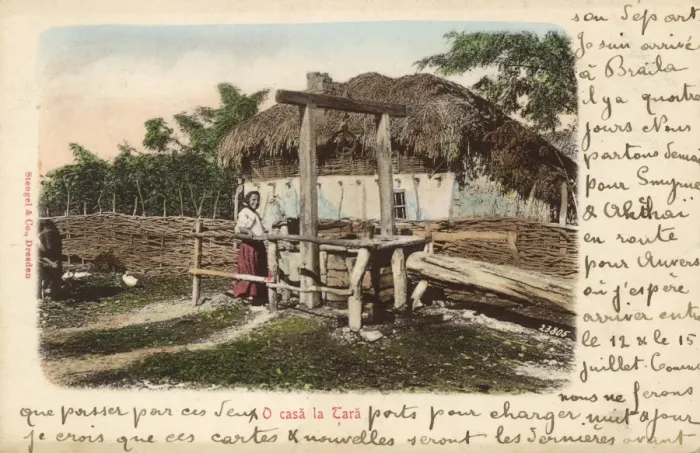 son départ
Je suis arrivé
à Braïla
il y a quatre
jours Nous
partons Demain
pour Smyrne
&
en route
pour Anvers
où j'espère
arriver entre
le 12 & le 15
juillet. Comme
nous ne ferons
que passer par ces deux ports pour charger nuit & jour
je crois que ces cartes & nouvelles seront les dernières avant
O casă la Ţară
Stengel & Co., Dresden
23805